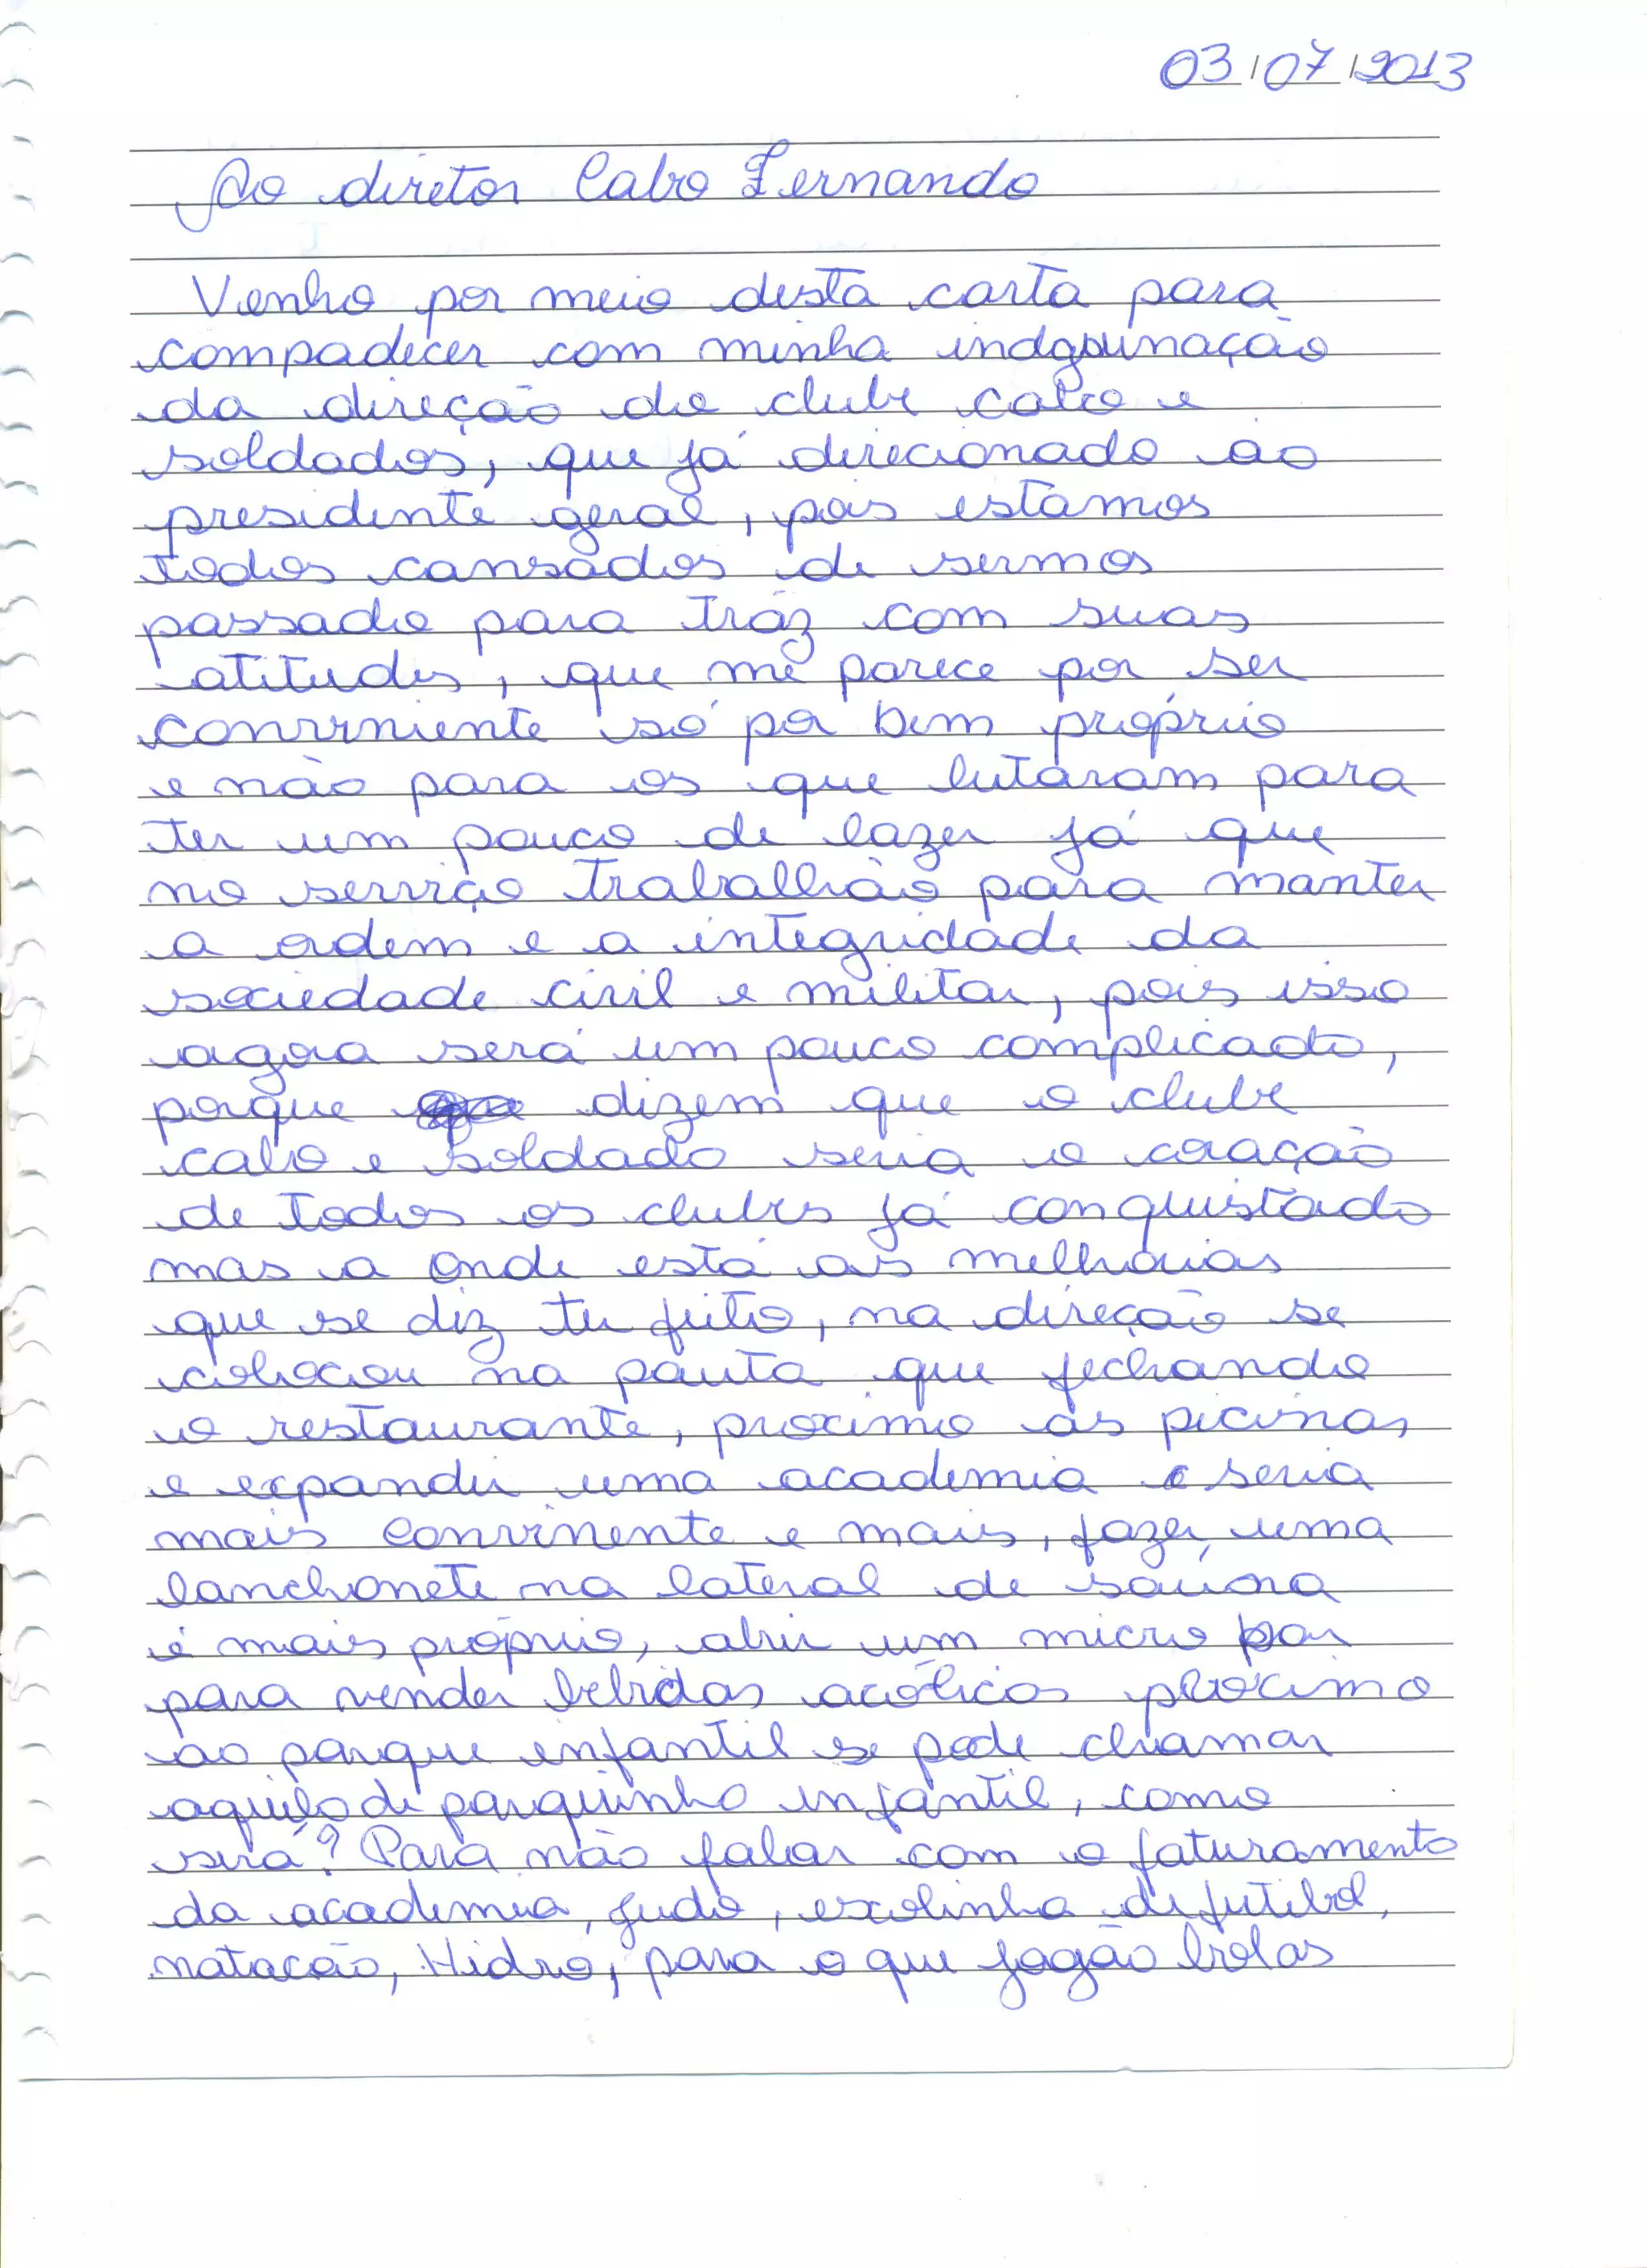 03/07/2013
Ao diretor Cabo Fernando
Venho por meio desta carta para
compadecer com minha
da direção do clube cabo e
soldados, que já direcionado ao
presidente geral, pois estamos
todos cansados de sermos
passado para tráz com suas
atitudes, que me parece por ser
conveniente só por bem próprio
e não para os que lutaram para
ter um pouco de lazer já que
no serviço trabalhão para manter
a ordem e a integridade da
sociedade civil e militar, pois isso
agora será um pouco complicado,
porque dizem que o clube
cabo e soldado seria o coração
de todos os clubes já conquistado
mas a onde está as melhorias
que se diz ter feito, na direção se
colocou na pauta que fechando
o restaurante, proximo as picinas,
e expandir uma academia e seria
mais convinente e mais, fazer uma
lanchonete na lateral de sauna
é mais próprio, abrir um micro bar
para vender bebidas acólicas proximo
ao parque infantil se pode chamar
aquilo di parquinho infantil, como
será? Para não falar com o faturamento
da academia, judo, escolinha di futebol,
natacão, Hidro, para o que jogão bolas